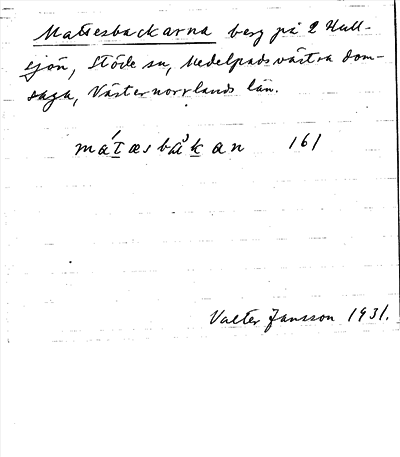 Mattesbackarna berg på 2 Hull-
sjön, Stöde sn, Medelpads västra dom-
saga, Västernorrlands län.
mátæsbåkan 161
Valter Jansson 1931.